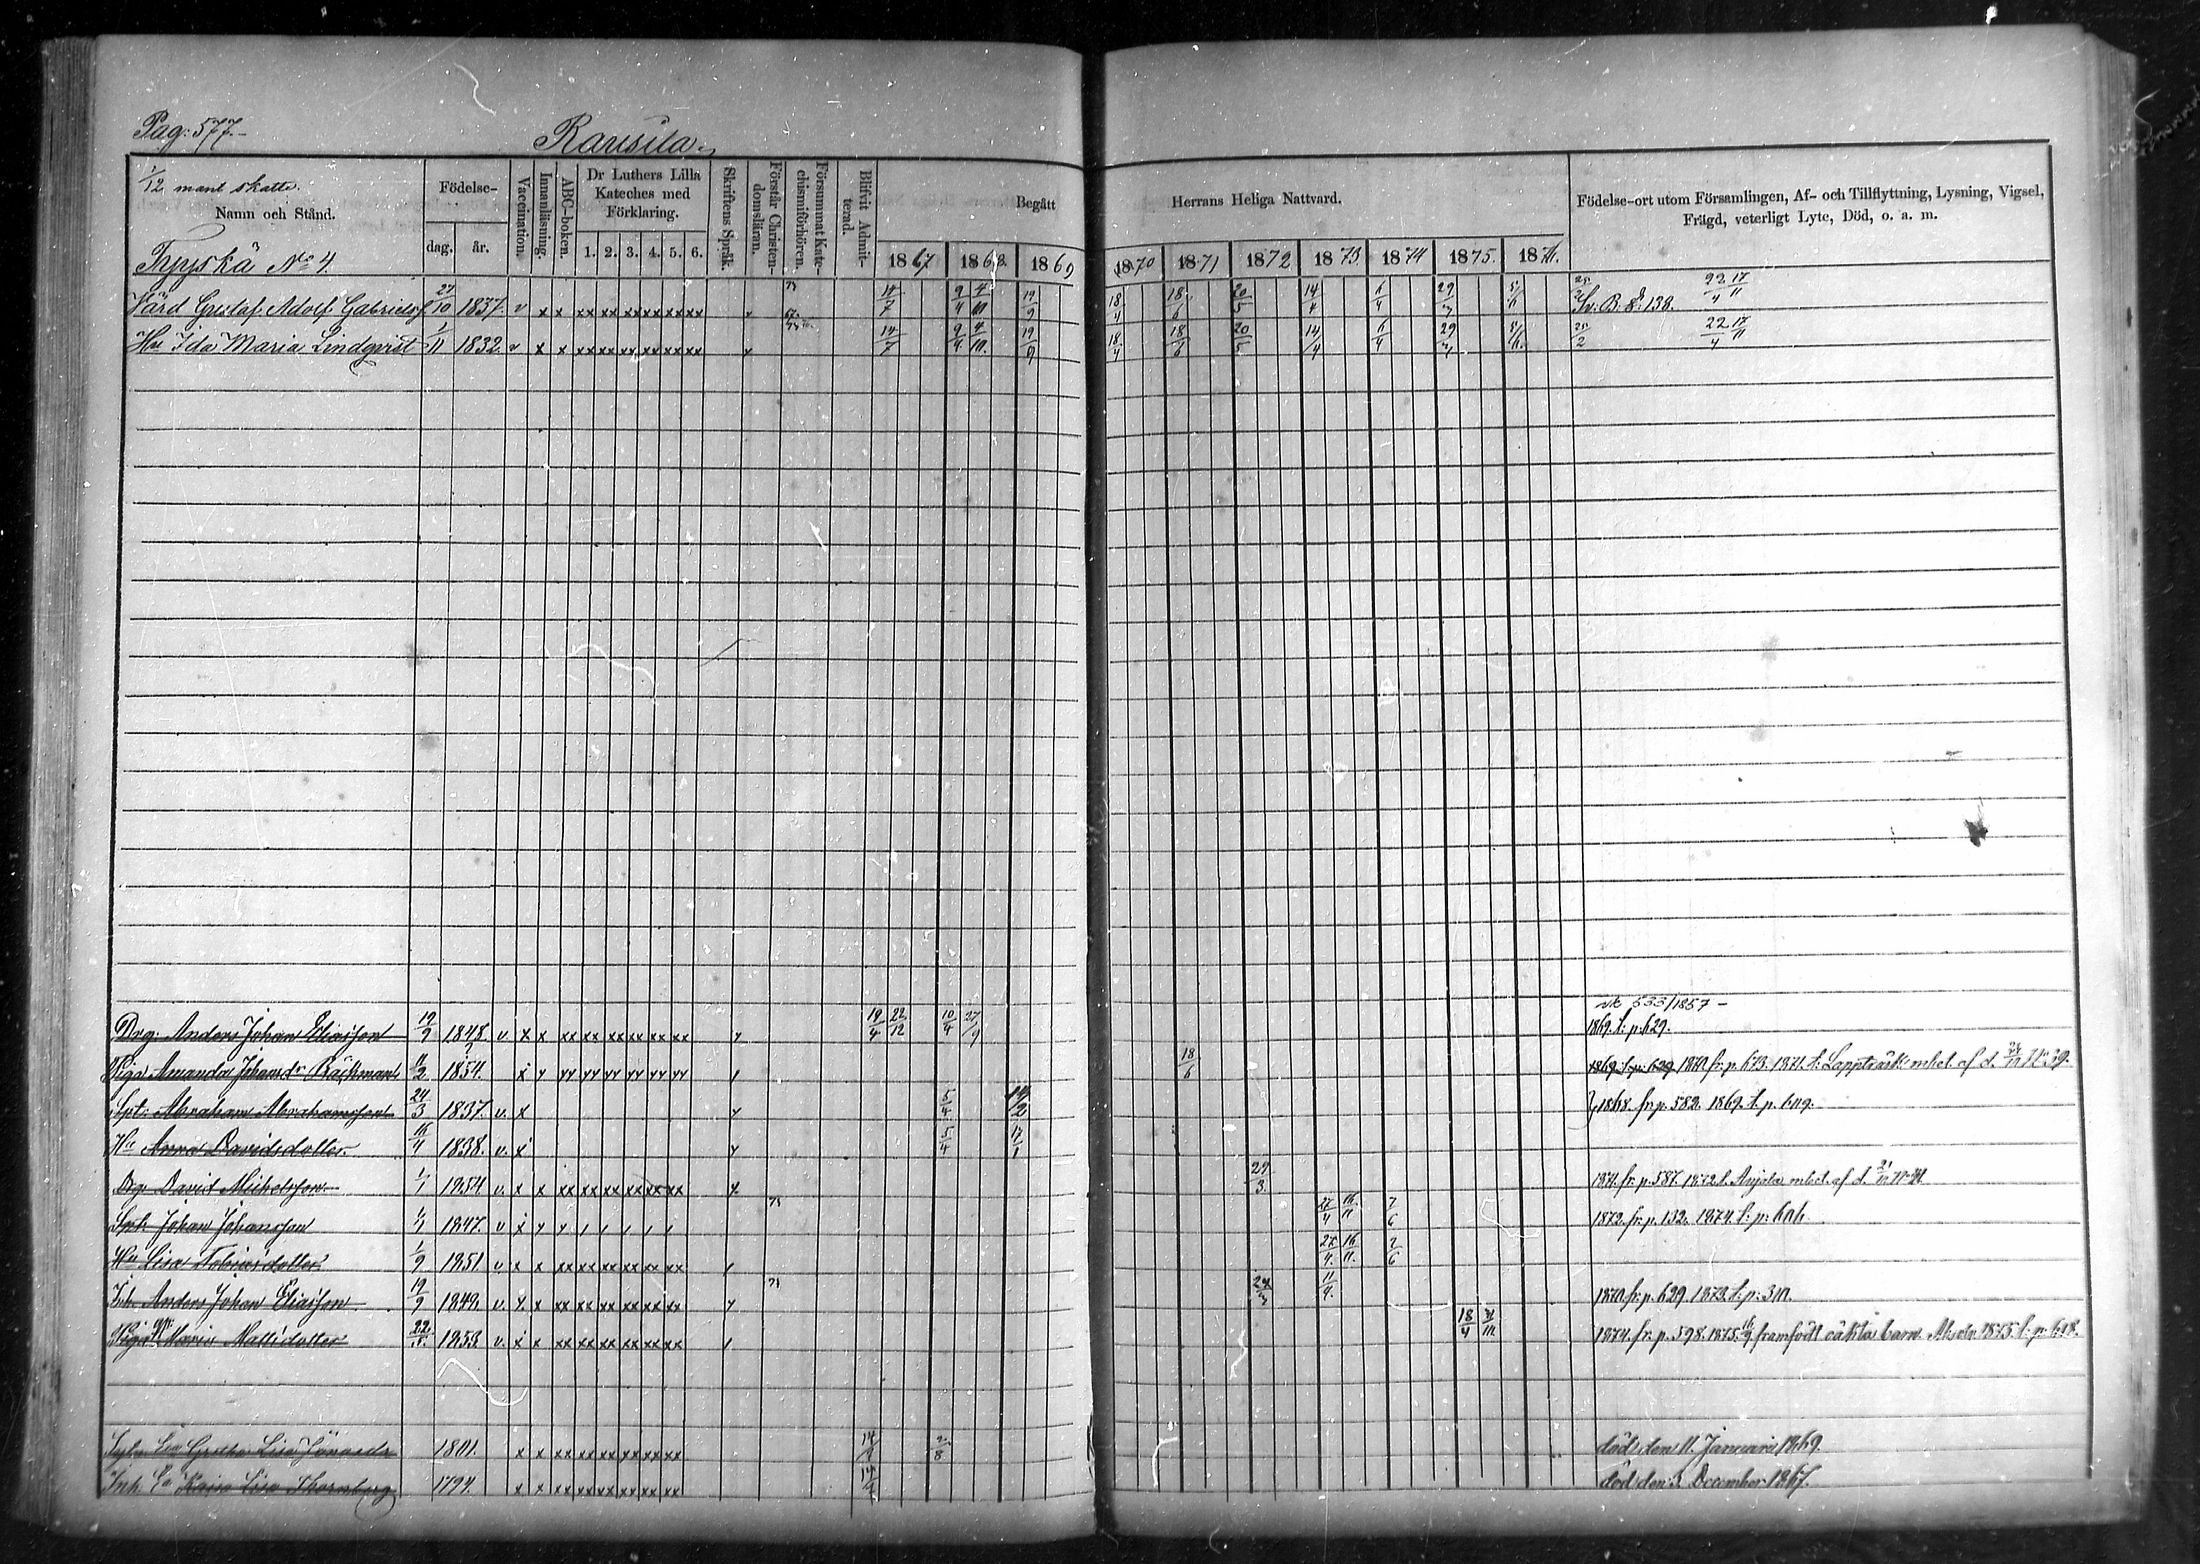 Pag: 577.
Rausila.
1/12 mant skatte.
Namn och Stånd.
Födelse-
dag. år.
Vaccination.
Innanläsning.
ABC-boken.
Dr Luthers Lilla Kateches med Förklaring.
1. 2. 3. 4. 5. 6.
Skriftens Språk.
Förstår Christendomsläran.
Försummat Katechismiförhören.
Blifvit Admitterad.
Begått Herrans Heliga Nattvard.
1867 1868 1869 1870 1871 1872 1873 1874 1875 1876
Födelse-ort utom Församlingen, Af- och Tillflyttning, Lysning, Vigsel,
Frägd, veterligt Lyte, Död, o. a. m.
Tyyskä No 4.
Värd Gustaf Adolf Gabrielsf 27/10 1837. v x x xx xx xx xx xx xx 14/7 9/4 4/10 19/9 18/4 18/6 20/5 14/4 6/4 29/3 138.
Hu Ida Maria Lindqvist 1/11 1832. v x x xx xx xx xx xx xx 14/7 9/4 4/10 19/9 18/4 18/6 20/5 14/4 6/4 29/3 22/4 17/11
533/1857 -
Drg: Anders Johan Eliasson 19/9 1848. v. x x xx xx xx xx xx xx 19/4 22/12 10/4 27/9 1869. t. p. 629.
Piga Amanda Johansdr Bäckman 11/2 1854. 18/6 1869 t. p. 629 1870 fr. p. 673. 1871. t. Lappträsk mbet. af d.
Spt: Abraham Abrahamsson 24/3 1837. v. x 5/4 1868. fr. p. 582. 1869. t. p.
Hu Anna Davidsdotter. 1838. v. x 5/4 17/1
Drg David Michelsson 1/1 1854. v. x x xx xx xx xx xx xx 29/3 1871. fr. p. 587. 1872. t. Anjala mbet. af d.
Johan Johansson 1847. v 27/4 16/11 7/6 1873. fr. p. 132. 1874. t. p.
Hu Lisa Tobiasdotter 1/9 1851 v. x x xx xx xx xx xx xx 27/4. 16/11. 7/6
Inh. Anders Johan Eliasson 19/9 1848. v. x x xx xx xx xx xx xx 1870 fr. p. 629 1873. t. p.
Piga Maria Mattsdotter 22/5. 1853 v. x x xx xx xx xx xx xx 18/4 1874. fr. p. 598. 1875. framfödt oäkta barn. 1875 t. p.
Gretha Lisa 1801. x x xx xx xx xx xx xx död den 11. Januari 1869.
Inh. Ea Kaisa Lisa Thornberg 1794. x x xx xx xx xx xx xx död den 3. December 1867.